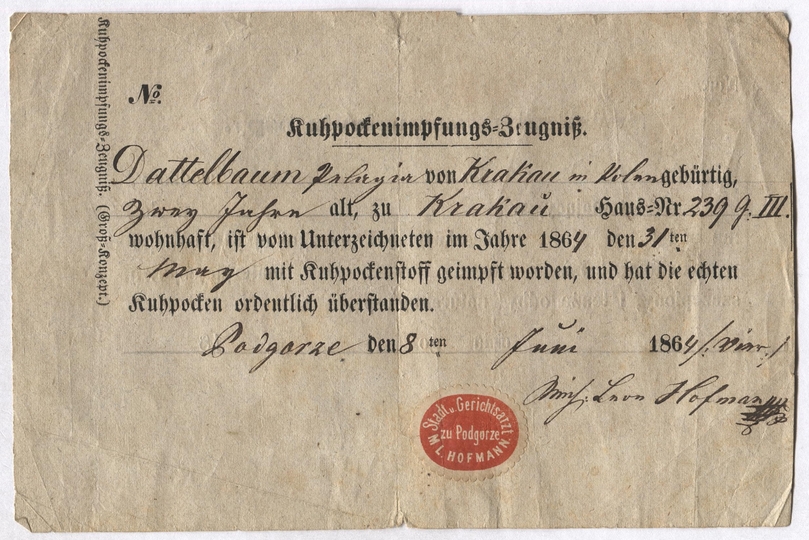 Kuhpockenimpfungs-Zeugniß. (Groß-Konzept.)
No.
Kuhpockenimpfungs-Zeugniß.
Dattelbaum Pelagia von Krakau in Polen gebürtig,
Zwey Jahre alt, zu Krakau Haus-Nr 239 g. III.
wohnhaft, ist vom Unterzeichneten im Jahre 1864 den 31ten
May mit Kuhpockenstoff geimpft worden, und hat die echten
Kuhpocken ordentlich überstanden.
Podgorze den 8ten Juni 1864 /: Vier :/
Mich: Leon Hofmann
Stadt u. Gerichtsarzt
zu Podgorze
M L. HOFMANN.